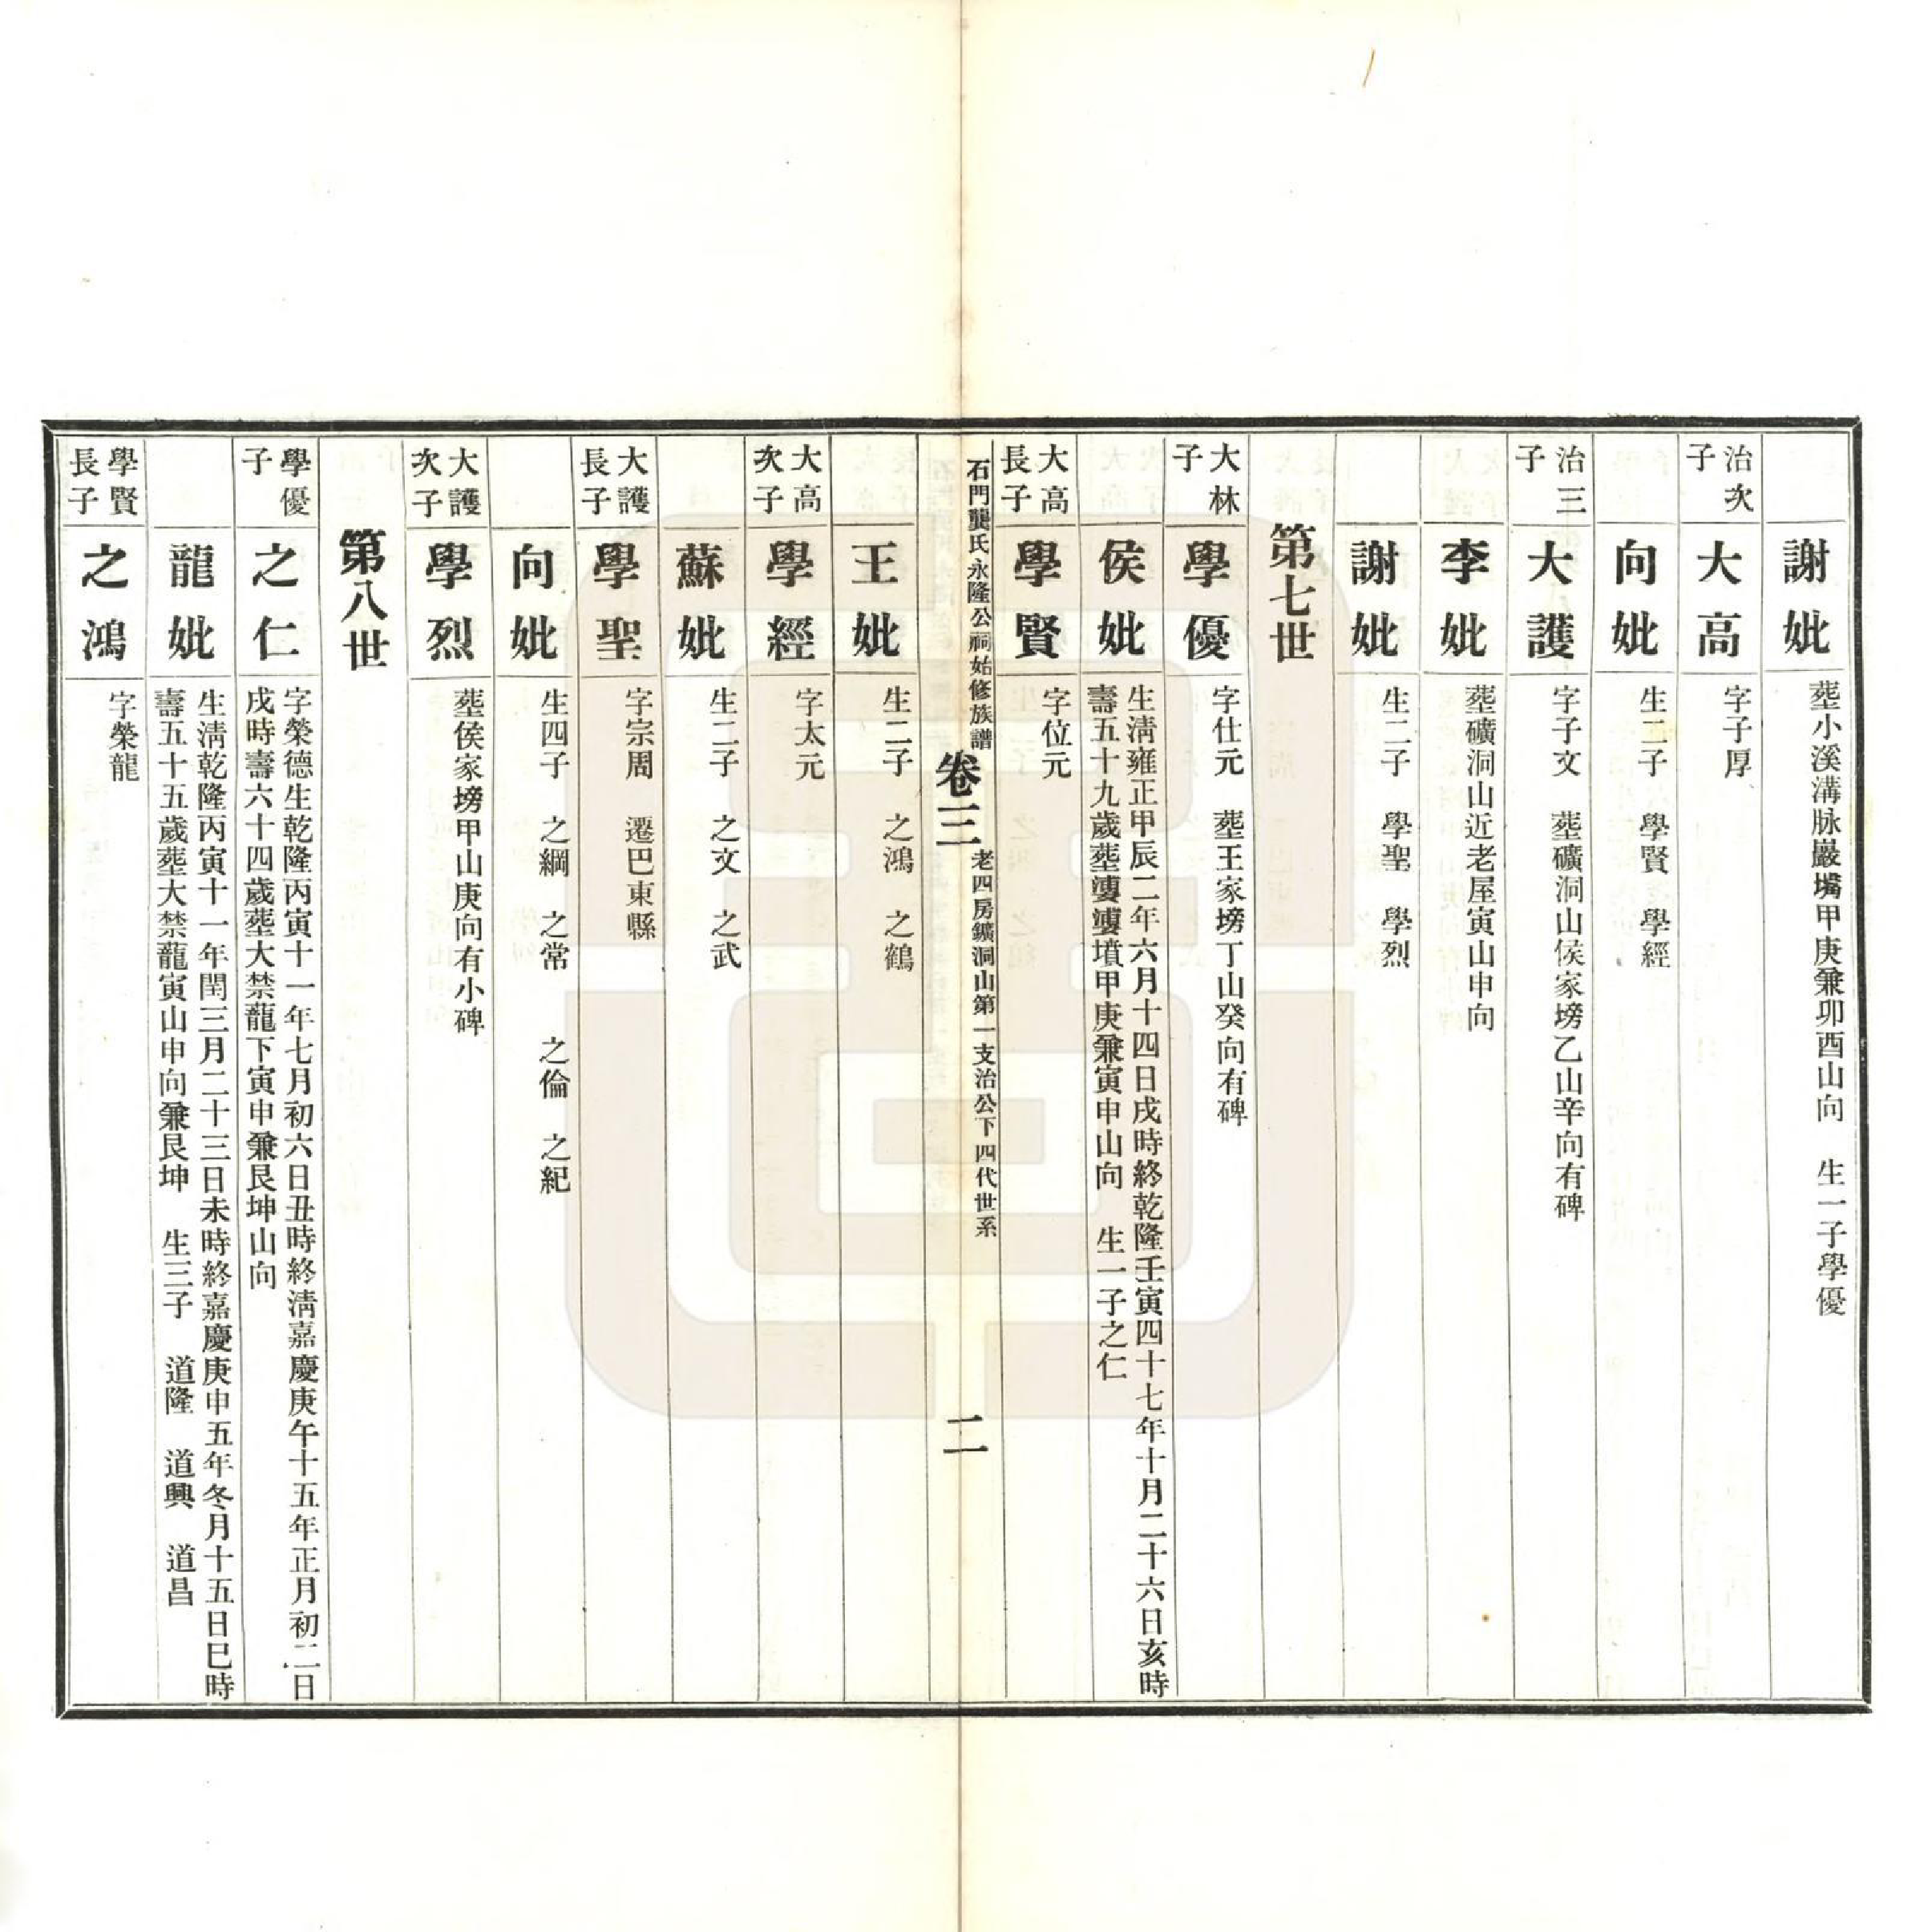 謝妣
葬小溪溝脉巖嘴甲庚兼卯酉山向 生一子學優
治次子
大高
字子厚
向妣
生二子 學賢 學經
治三子
大護
字子文 葬礦洞山侯家塝乙山辛向有碑
李妣
葬礦洞山近老屋寅山申向
謝妣
生二子 學聖 學烈
第七世
大林子
學優
字仕元 葬王家塝丁山癸向有碑
侯妣
生淸雍正甲辰二年六月十四日戌時終乾隆壬寅四十七年十月二十六日亥時
壽五十九歲葬墳甲庚兼寅申山向 生一子之仁
大高長子
學賢
字位元
石門龔氏永隆公祠始修族譜 卷三 老四房鑛洞山第一支治公下四代世系 二
王妣
生二子 之鴻 之鶴
大高次子
學經
字太元
蘇妣
生二子 之文 之武
大護長子
學聖
字宗周 遷巴東縣
向妣
生四子 之綱 之常 之倫 之紀
大護次子
學烈
葬侯家塝甲山庚向有小碑
第八世
學優子
之仁
字榮德生乾隆丙寅十一年七月初六日丑時終淸嘉慶庚午十五年正月初二日
戌時壽六十四歲葬大禁龍下寅申兼艮坤山向
龍妣
生淸乾隆丙寅十一年閏三月二十三日未時終嘉慶庚申五年冬月十五日巳時
壽五十五歲葬大禁龍寅山申向兼艮坤 生三子 道隆 道興 道昌
學賢長子
之鴻
字榮龍